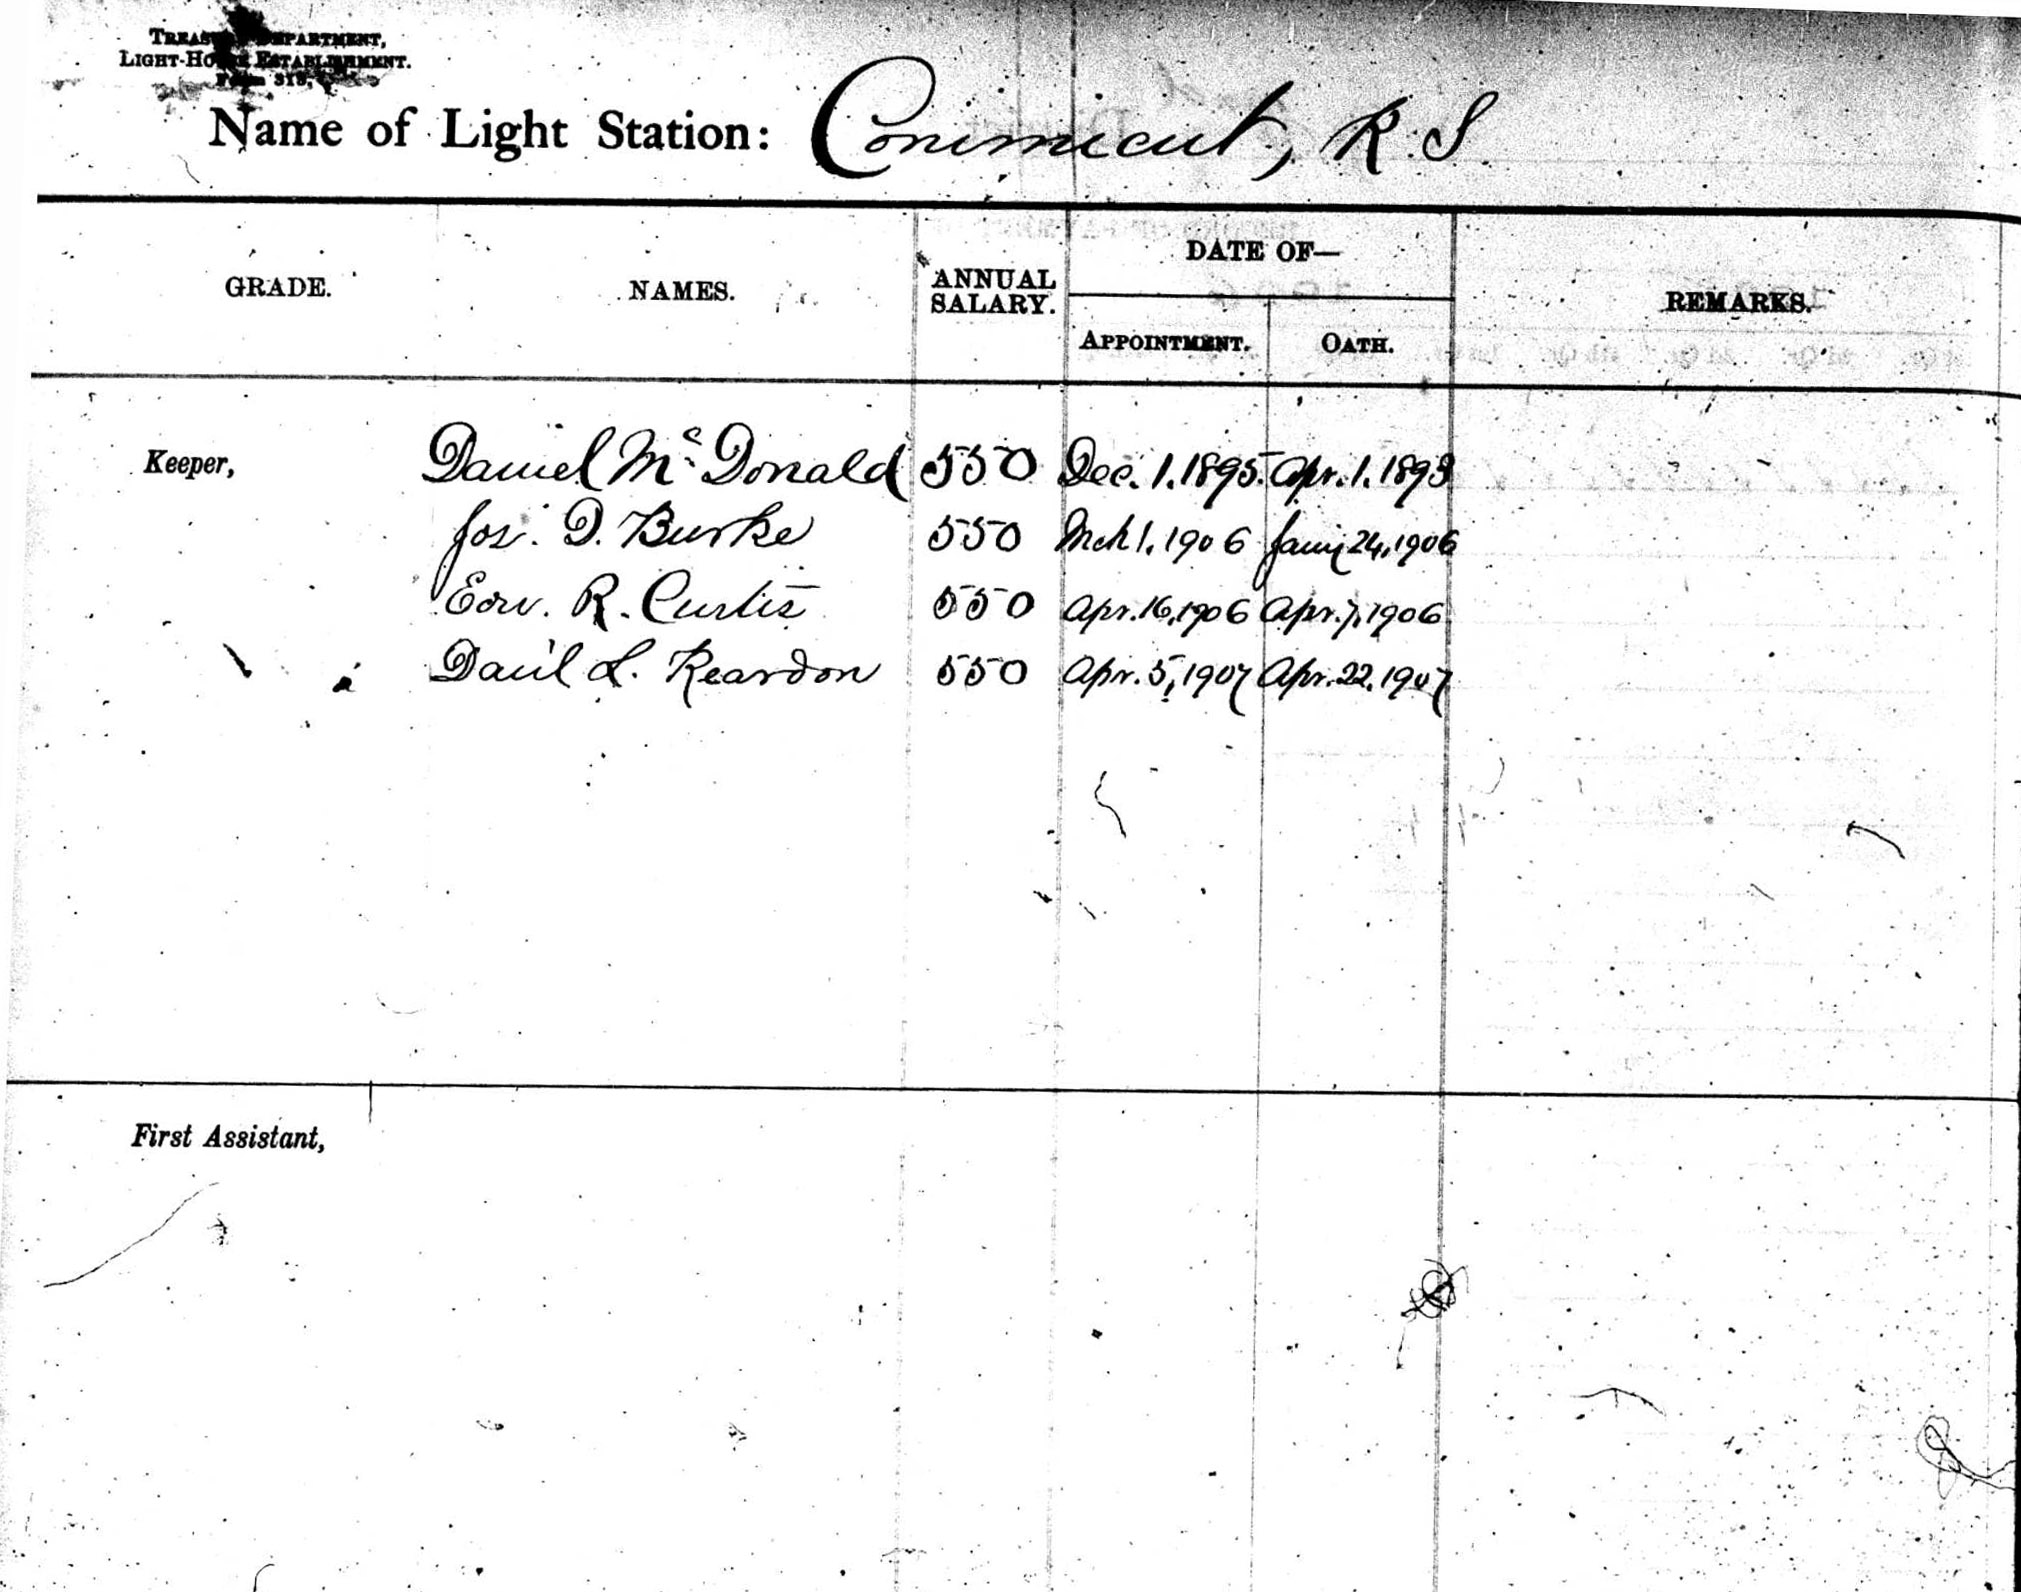 TREASURY DEPARTMENT,
LIGHT-HOUSE ESTABLISHMENT.
Form 313,
Name of Light Station: Conimicut, R. I.
DATE OF—
GRADE. NAMES. ANNUAL SALARY. REMARKS.
APPOINTMENT. OATH.
Keeper, Daniel McDonald 550 Dec. 1. 1895. Apr. 1. 1893
Jos. D. Burke 550 Mch 1, 1906 Jany 24, 1906
Edw. R. Curtis 550 Apr. 16, 1906 Apr. 7, 1906
Dan'l L. Reardon 550 Apr. 5, 1907 Apr. 22, 1907
First Assistant,